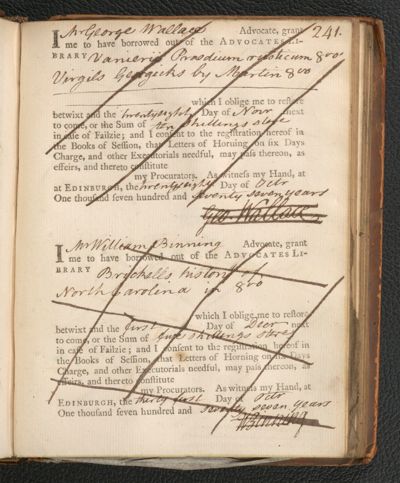 241.
I Mr George Wallace Advocate, grant
me to have borrowed out of the ADVOCATES LI-
BRARY Vanierii Praedium rusticum 8vo
Virgils Georgicks by Martin 8vo
which I oblige me to reſtore
betwixt and the twentyeighth Day of Novr next
to come, or the Sum of ten shillings sterg
in caſe of Failzie; and I conſent to the regiſtration hereof in
the Books of Seſſion, that Letters of Horning, on ſix Days
Charge, and other Executorials needful, may paſs thereon, as
effeirs, and thereto conſtitute
my Procurators. As witneſs my Hand, at
at EDINBURGH, the twentyeighth Day of Octr
One thouſand ſeven hundred and seventy seven years
Geo. Wallace
I Mr William Binning Advocate, grant
me to have borrowed out of the ADVOCATES LI-
BRARY Brickells history of
North Carolina in 8vo
which I oblige me to reſtore
betwixt and the first Day of Decr next
to come, or the Sum of five shillings sterg
in caſe of Failzie; and I conſent to the regiſtration hereof in
the Books of Seſſion, that Letters of Horning on ſix Days
Charge, and other Executorials needful, may paſs thereon, as
effeirs, and thereto conſtitute
my Procurators. As witneſs my Hand, at
EDINBURGH, the thirty first Day of Octr
One thouſand ſeven hundred and seventy seven years
W Binning